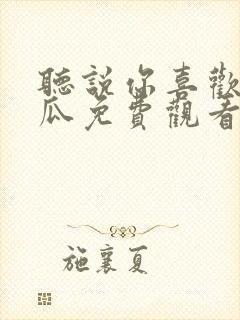 聽説你喜歡
瓜免費觀看
施襄夏